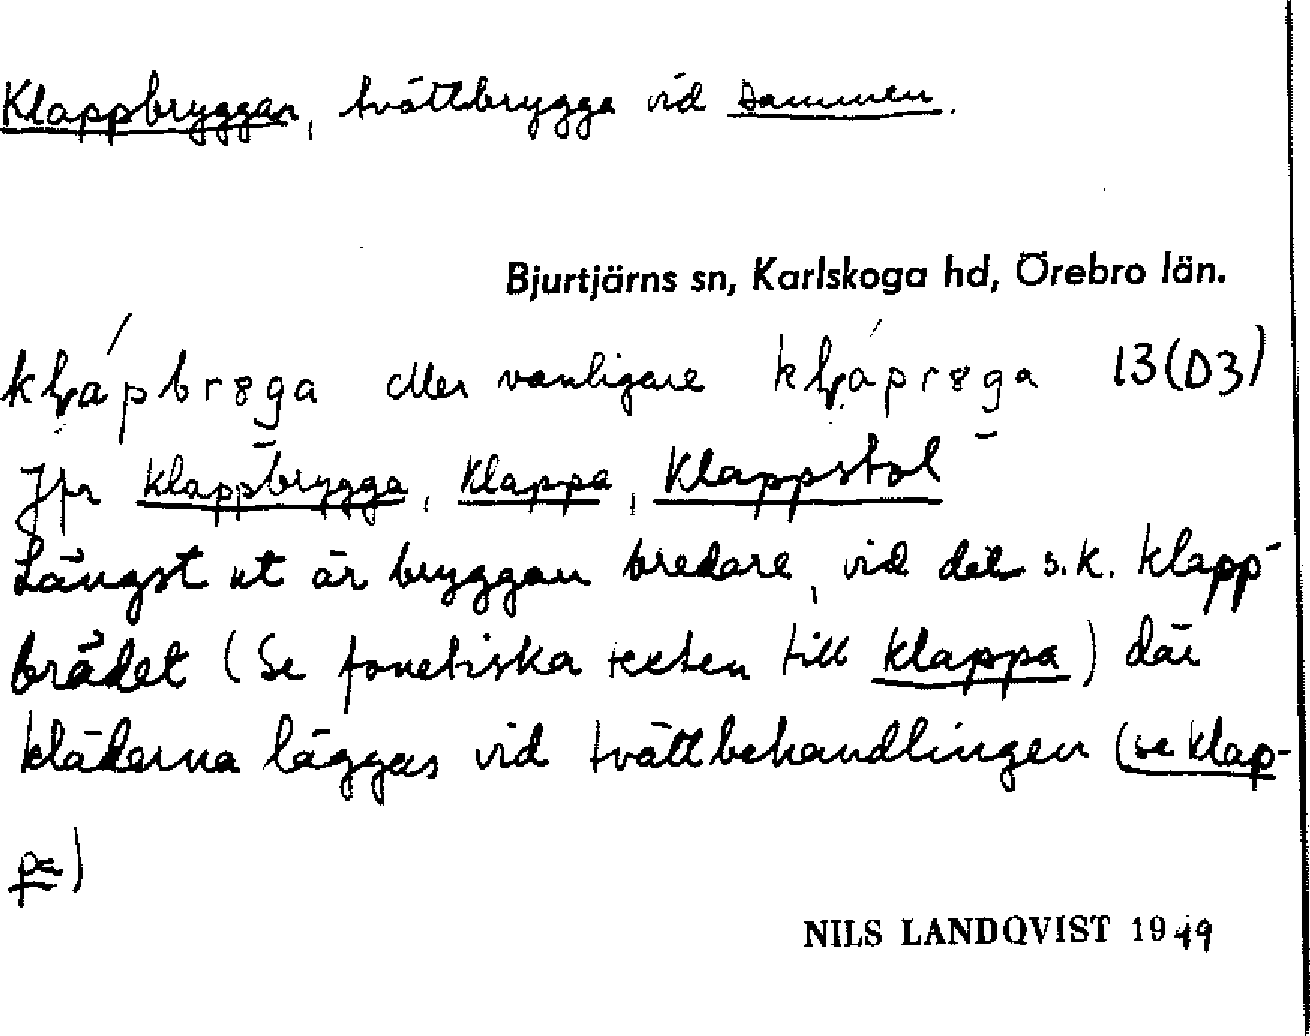 Klappbryggan, tvättbrygga vid Dammen.
Bjurtjärns sn, Karlskoga hd, Örebro län.
eller vanligare 13(D3)
Jfr klappbrygga, klappa, klappstol
Längst ut är bryggan bredare, vid det s.k. klapp-
brädet (se fonetiska texten till klappa) där
kläderna läggas vid tvättbehandlingen (se klap-
pa)
NILS LANDQVIST 1949